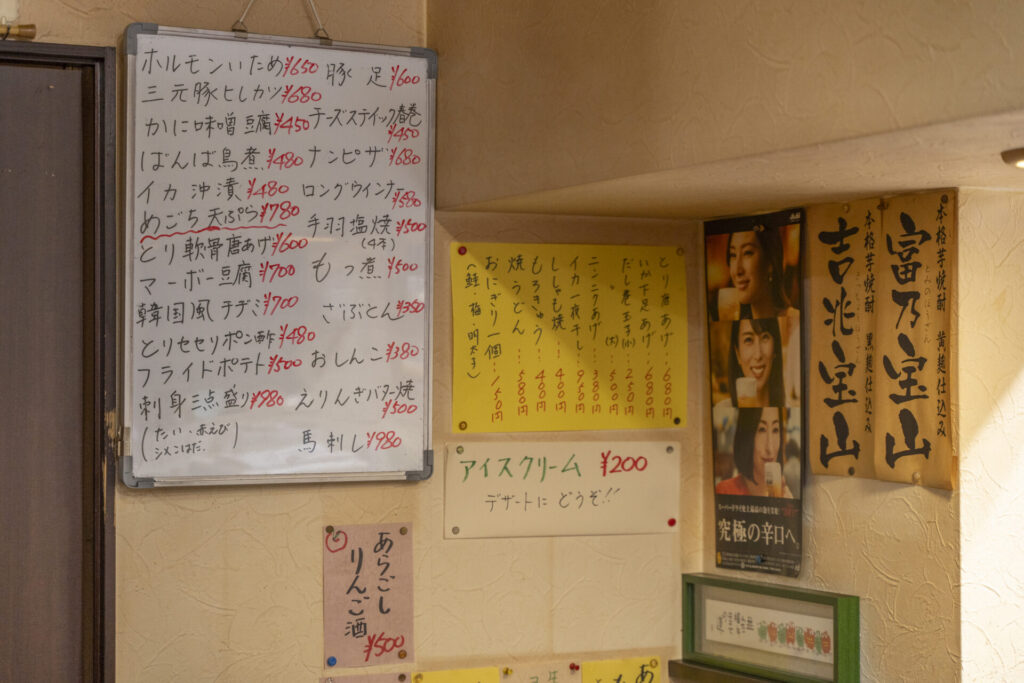 ホルモンいため ¥650
三元豚ヒレカツ ¥680
かに味噌豆腐 ¥450
ばんば鳥煮 ¥480
イカ沖漬 ¥480
めごち天ぷら ¥780
とり軟骨唐あげ ¥600
マーボー豆腐 ¥700
韓国風チヂミ ¥700
とりセセリポン酢 ¥480
フライドポテト ¥500
刺身三点盛り ¥980
(たい、赤えび
シメこはだ)
豚足 ¥600
チーズスティック春巻 ¥450
ナンピザ ¥680
ロングウインナー ¥580
手羽塩焼 ¥500
(4本)
もつ煮 ¥500
ざぶとん ¥350
おしんこ ¥380
えりんぎバター焼 ¥500
馬刺し ¥980
とり唐あげ…680円
いか下足あげ…680円
だし巻玉子(小)…250円
(大)…500円
ニンニクあげ…380円
イカ一夜干し…950円
ししゃも焼…400円
もろきゅう…400円
焼うどん…580円
おにぎり一個…150円
(鮭・梅・明太子)
アイスクリーム ¥200
デザートに どうぞ!!
あらごし
りんご酒
¥500
究極の辛口へ。
本格芋焼酎 黄麹仕込み
富乃宝山
とみのほうざん
本格芋焼酎 黒麹仕込み
吉兆宝山